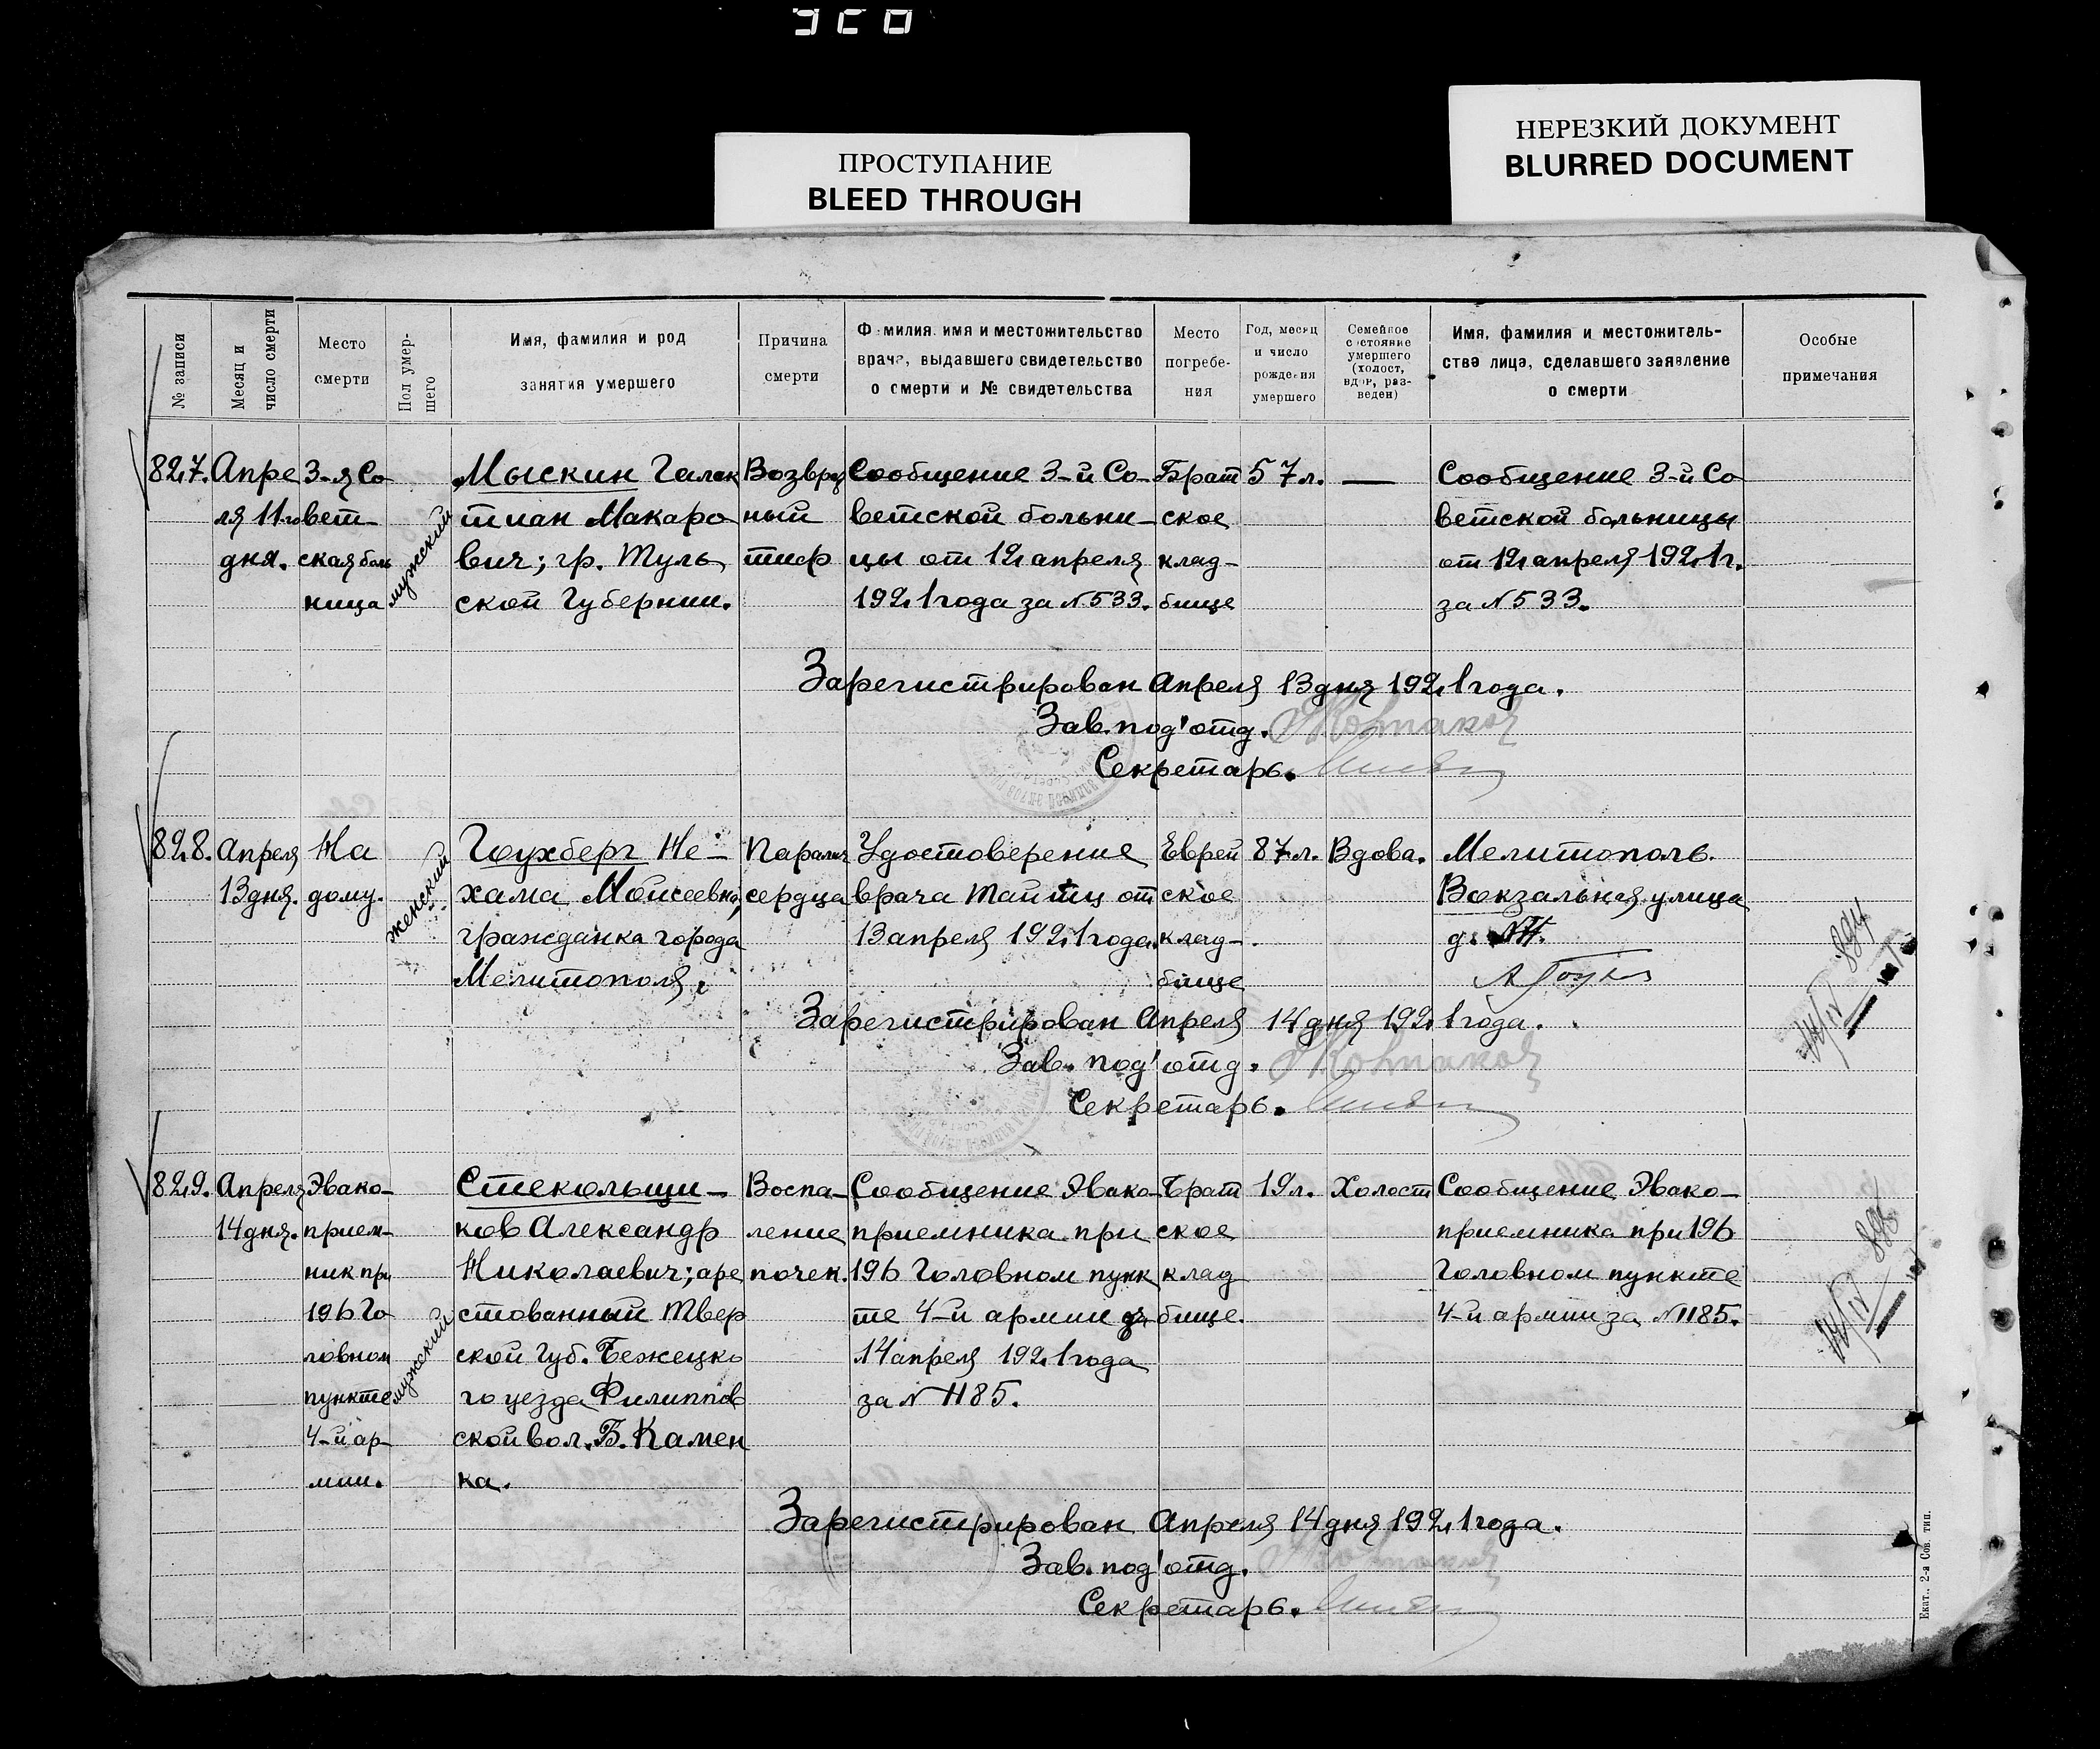 ПРОСТУПАНИЕ
BLEED THROUGH
НЕРЕЗКИЙ ДОКУМЕНТ
BLURRED DOCUMENT
№ записи
Месяц и
число смерти
Место
смерти
Пол умер-
шего
Имя, фамилия и род
занятия умершего
Причина
смерти
Фамилия, имя и местожительство
врача, выдавшего свидетельство
о смерти и № свидетельства
Место
погребе-
ния
Год, месяц
и число
рождения
умершего
Семейное
состояние
умершего
(холост,
вдов, раз-
веден)
Имя, фамилия и местожитель-
ства лица, сделавшего заявление
о смерти
Особые
примечания
827.
Апре
ля 11го
дня.
3-я Со
вет-
ская боль
ница
мужской
Мыскин Галак
тиан Макаро
вич; гр. Туль
ской Губернии.
Возврат
ный
тиф
Сообщение 3-й Со-
ветской больни-
цы от 12 апреля
1921 года за № 533.
Брат
ское
клад-
бище
57 л.
—
Сообщение 3-й Со
ветской больницы
от 12 апреля 1921 г.
за № 533.
Зарегистрирован Апреля 13 дня 1921 года.
Зав. под'отд.
Секретарь.
828.
Апреля
13 дня.
На
дому.
женский
Гоухберг Не-
хама Мойсеевна,
гражданка города
Мелитополя.
Паралич
сердца
Удостоверение
врача Тайтц от
13 апреля 1921 года.
Еврей
ское
клад-
бище
87 л.
Вдова.
Мелитополь.
Вокзальная улица
д.
Зарегистрирован Апреля 14 дня 1921 года.
Зав. под'отд.
Секретарь.
829.
Апреля
14 дня.
Эвако-
прием-
ник при
196 Го
ловном
пункте
4-й ар-
мии.
мужской
Стекольщи-
ков Александр
Николаевич; аре
стованный Твер
ской Губ. Бежецко
го уезда Филиппов
ской вол. Б. Камен
ка.
Воспа-
ление
почек.
Сообщение Эвако-
приемника при
196 Головном пунк
те 4-й армии от
14 апреля 1921 года
за № 1185.
Брат
ское
клад
бище.
19 л.
Холост
Сообщение Эвако-
приемника при 196
Головном пункте
4-й армии за № 1185.
Зарегистрирован Апреля 14 дня 1921 года.
Зав. под'отд.
Секретарь.
Екат., 2-я Сов. тип.